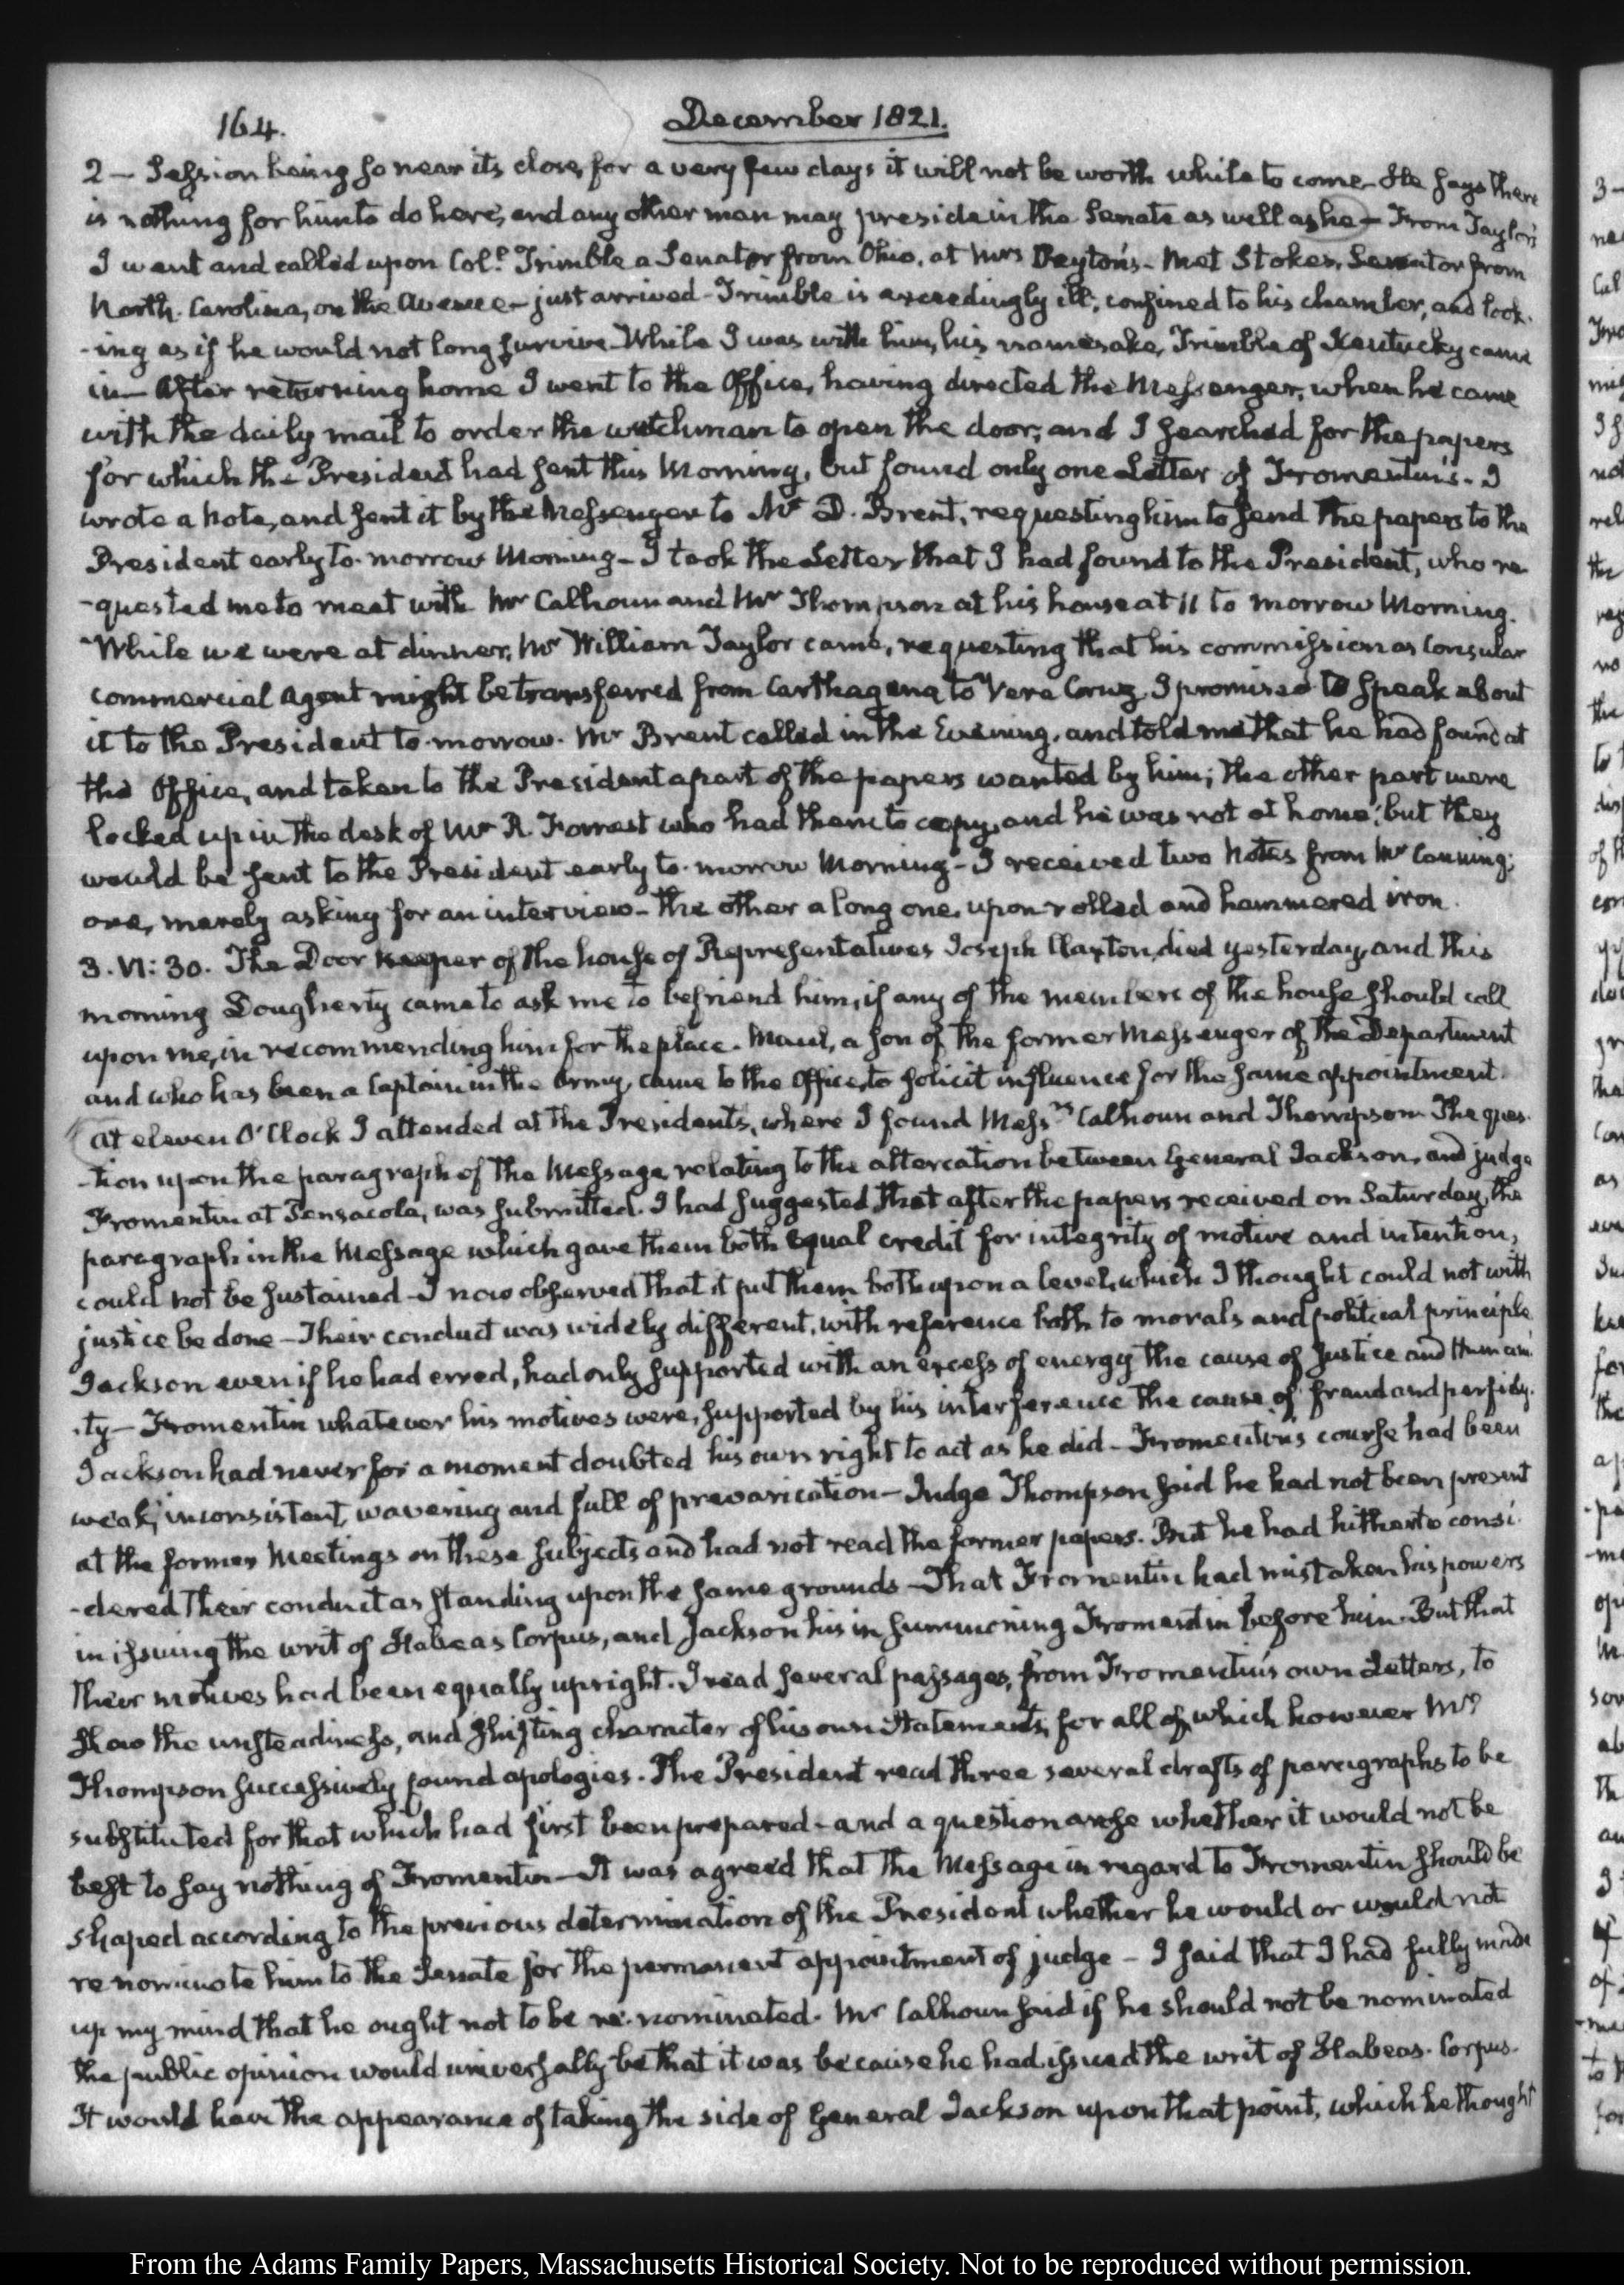 164.
December 1821.
2 — Session being so near its close, for a very few days it will not be worth while to come — He says there
is nothing for him to do here, and any other man may preside in the Senate as well as he — From Taylor's
I went and called upon Col.l Trimble a Senator from Ohio, at Mrs Peyton's — Met Stokes, Senator from
North-Carolina, on the Avenue — just arrived — Trimble is exceedingly ill, confined to his chamber, and look-
-ing as if he would not long survive. While I was with him, his namesake, Trimble of Kentucky came
in — After returning home I went to the Office, having directed the Messenger, when he came
with the daily mail to order the watchman to open the door; and I searched for the papers
for which the President had sent this Morning, but found only one Letter of Fromentin's — I
wrote a Note, and sent it by the Messenger to Mr D. Brent, requesting him to send the papers to the
President early to-morrow Morning — I took the Letter that I had found to the President, who re-
-quested me to meet with Mr Calhoun and Mr Thompson at his house at 11 to morrow Morning.
While we were at dinner, Mr William Taylor came, requesting that his commission as Consular
commercial Agent might be transferred from Carthagena to Vera Cruz. I promised to speak about
it to the President to-morrow. Mr Brent called in the Evening, and told me that he had found at
the Office, and taken to the President a part of the papers wanted by him; the other part were
locked up in the desk of Mr R. Forrest who had them to copy, and he was not at home; but they
would be sent to the President early to-morrow Morning — I received two Notes from Mr Canning;
one, merely asking for an interview — the other a long one, upon rolled and hammered iron.
3. VI: 30. The Door keeper of the house of Representatives Joseph Claxton, died yesterday, and this
morning Dougherty came to ask me to befriend him, if any of the members of the house should call
upon me, in recommending him for the place. Maul, a son of the former Messenger of the Department
and who has been a Captain in the Army, came to the Office, to solicit influence for the same appointment.
At eleven O'Clock I attended at the President's, where I found Messrs Calhoun and Thompson. The ques-
-tion upon the paragraph of the Message relating to the altercation between General Jackson, and judge
Fromentin at Pensacola, was submitted. I had suggested that after the papers received on Saturday, the
paragraph in the Message which gave them both equal credit for integrity of motive and intention,
could not be sustained — I now observed that it put them both upon a level, which I thought could not with
justice be done — Their conduct was widely different, with reference both to morals and political principle
Jackson even if he had erred, had only supported with an excess of energy the cause of Justice and Humani-
-ty — Fromentin whatever his motives were, supported by his interference the cause of fraud and perfidy.
Jackson had never for a moment doubted his own right to act as he did — Fromentin's course had been
weak, inconsistent, wavering and full of prevarication — Judge Thompson said he had not been present
at the former Meetings on these subjects and had not read the former papers. But he had hitherto consi-
-dered their conduct as standing upon the same grounds — That Fromentin had mistaken his powers
in issuing the writ of Habeas Corpus, and Jackson his in summoning Fromentin before him. But that
their motives had been equally upright. I read several passages, from Fromentin's own Letters, to
show the unsteadiness, and shifting character of his own statements, for all of which however Mr
Thompson successively found apologies. The President read three several drafts of paragraphs to be
substituted for that which had first been prepared — and a question arose whether it would not be
best to say nothing of Fromentin — It was agreed that the Message in regard to Fromentin should be
shaped according to the previous determination of the President whether he would or would not
re nominate him to the Senate for the permanent appointment of judge — I said that I had fully made
up my mind that he ought not to be re-nominated. Mr Calhoun said if he should not be nominated
the public opinion would universally be that it was because he had issued the writ of Habeas-Corpus.
It would have the appearance of taking the side of General Jackson upon that point, which he thought
From the Adams Family Papers, Massachusetts Historical Society. Not to be reproduced without permission.